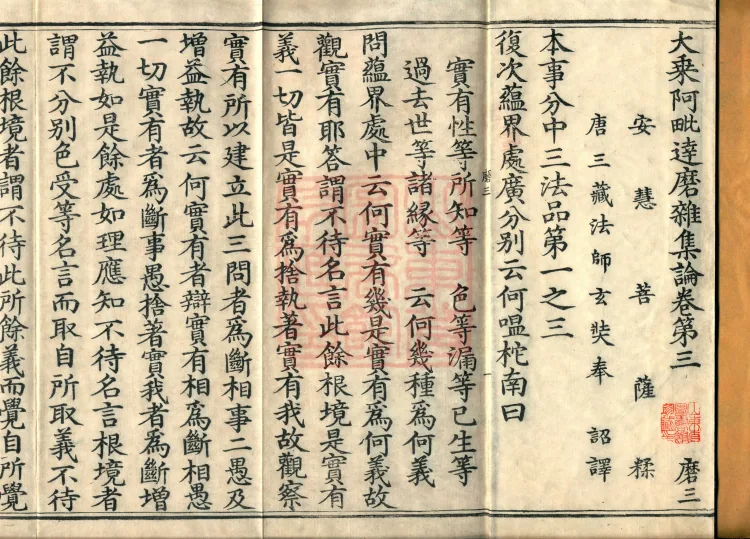 大乘阿毗達磨雜集論卷第三 磨三
安慧菩薩糅
唐三藏法師玄奘奉 詔譯
本事分中三法品第一之三
復次蘊界處廣分别云何嗢柁南曰
磨三
實有性等所知等 色等漏等已生等
過去世等諸緣等 云何幾種爲何義
問蘊界處中云何實有幾是實有爲何義故
觀實有耶答謂不待名言此餘根境是實有
義一切皆是實有爲捨執著實有我故觀察
實有所以建立此三問者爲斷相事二愚及
增益執故云何實有者辯實有相爲斷相愚
一切實有者爲斷事愚捨著實我者爲斷增
益執如是餘處如理應知不待名言根境者
謂不分别色受等名言而取自所取義不待
此餘根境者謂不待此所餘義而覺自所覺